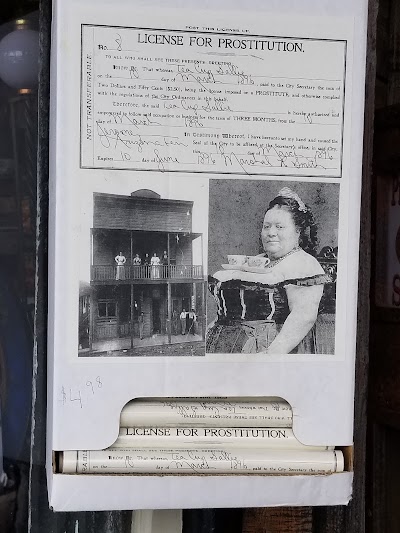 POST THIS LICENSE UP
No. 8
LICENSE FOR PROSTITUTION.
TO ALL WHO SHALL SEE THESE PRESENTS, GREETING:
NOT TRANSFERABLE
Know Ye, That whereas Tea Cup Sallie
on the 10 day of March 1896 paid to the City Secretary the sum of
Two Dollars and Fifty Cents ($2.50), being the license imposed on a PROSTITUTE, and otherwise complied
with the regulations of the City Ordinances in this behalf.
Therefore, the said Tea Cup Sallie is hereby authorized and
empowered to follow said occupation or business for the term of THREE MONTHS, from the 10
day of March 1896.
In Testimony Whereof, I have hereunto set my hand and caused the
Seal of said City to be affixed at the Secretary's office, in said City
this 10 day of March 1896
Expires 10 June 1896 Marshal
$4.98
LICENSE FOR PROSTITUTION.
Know Ye, That whereas Tea Cup Sallie
on the 10 day of March 1896 paid to the City Secretary the sum of